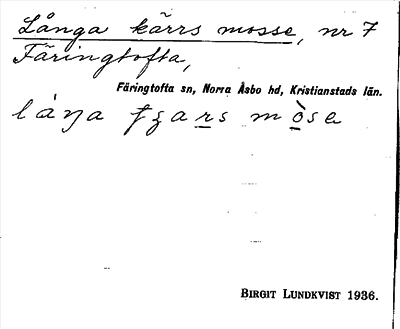 Långa kärrs mosse, nr 7
Färingtofta,
Färingtofta sn, Norra Åsbo hd, Kristianstads län.
BIRGIT LUNDKVIST 1936.